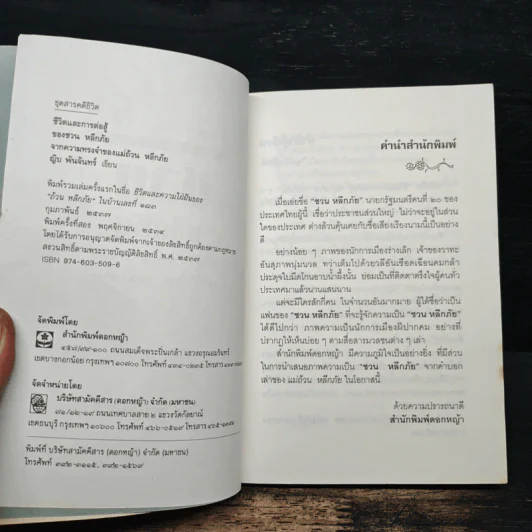 ชุดสารคดีชีวิต
ชีวิตและการต่อสู้
ของชวน หลีกภัย
จากความทรงจำของแม่ถ้วน หลีกภัย
ญิบ พันจันทร์ เขียน
พิมพ์รวมเล่มครั้งแรกในชื่อ ชีวิตและความใฝ่ฝันของ
"ถ้วน หลีกภัย" ในบ้านเลขที่ ๑๘๓
กุมภาพันธ์ ๒๕๓๗
พิมพ์ครั้งที่สอง พฤศจิกายน
โดยได้รับการอนุญาตจัดพิมพ์จากเจ้าของลิขสิทธิ์ถูกต้องตามกฎหมาย
สงวนสิทธิ์ตามพระราชบัญญัติลิขสิทธิ์ พ.ศ. ๒๕๓๗
ISBN 974-603-509-6
จัดพิมพ์โดย
สำนักพิมพ์ดอกหญ้า
ถนนสมเด็จพระปิ่นเกล้า แขวงอรุณอมรินทร์
เขตบางกอกน้อย กรุงเทพฯ ๑๐๗๐๐ โทรศัพท์ โทรสาร
จัดจำหน่ายโดย
บริษัทสามัคคีสาร (ดอกหญ้า) จำกัด (มหาชน)
๗๑/๑๒-๑๙ ถนนเทศบาลสาย ๒ แขวงวัดกัลยาณ์
เขตธนบุรี กรุงเทพฯ ๑๐๖๐๐ โทรศัพท์ ๔๖๖-๐๕๑๙ โทรสาร
พิมพ์ที่ บริษัทสามัคคีสาร (ดอกหญ้า) จำกัด (มหาชน)
โทรศัพท์
คำนำสำนักพิมพ์
เมื่อเอ่ยชื่อ "ชวน หลีกภัย" นายกรัฐมนตรีคนที่ ๒๐ ของ
ประเทศไทยผู้นี้ เชื่อว่าประชาชนส่วนใหญ่ ไม่ว่าจะอยู่ในส่วน
ใดของประเทศ ต่างล้วนคุ้นเคยกับชื่อเสียงเรียงนามนี้เป็นอย่าง
ดี
อย่างน้อย ๆ ภาพของนักการเมืองร่างเล็ก เจ้าของวาทะ
อันสุภาพนุ่มนวล ทว่าเต็มไปด้วยวลีอันเชือดเฉือนคมกล้า
ประดุจใบมีดโกนอาบน้ำผึ้งนั้น ย่อมเป็นที่ติดตาตรึงใจผู้คนทั่ว
ประเทศมาแล้วนานแสนนาน
แต่จะมีใครสักกี่คน ในจำนวนอันมากมาย ผู้ได้ชื่อว่าเป็น
แฟนของ "ชวน หลีกภัย" ที่จะรู้จักความเป็น "ชวน หลีกภัย"
ได้ดีไปกว่า ภาพความเป็นนักการเมืองมีปากคม อย่างที่
ปรากฏให้เห็นบ่อย ๆ ตามสื่อสารมวลชนต่าง ๆ เล่า
สำนักพิมพ์ดอกหญ้า มีความภูมิใจเป็นอย่างยิ่ง ที่มีส่วน
ในการนำเสนอภาพความเป็น "ชวน หลีกภัย" จากคำบอก
เล่าของ แม่ถ้วน หลีกภัย ในโอกาสนี้
ด้วยความปรารถนาดี
สำนักพิมพ์ดอกหญ้า